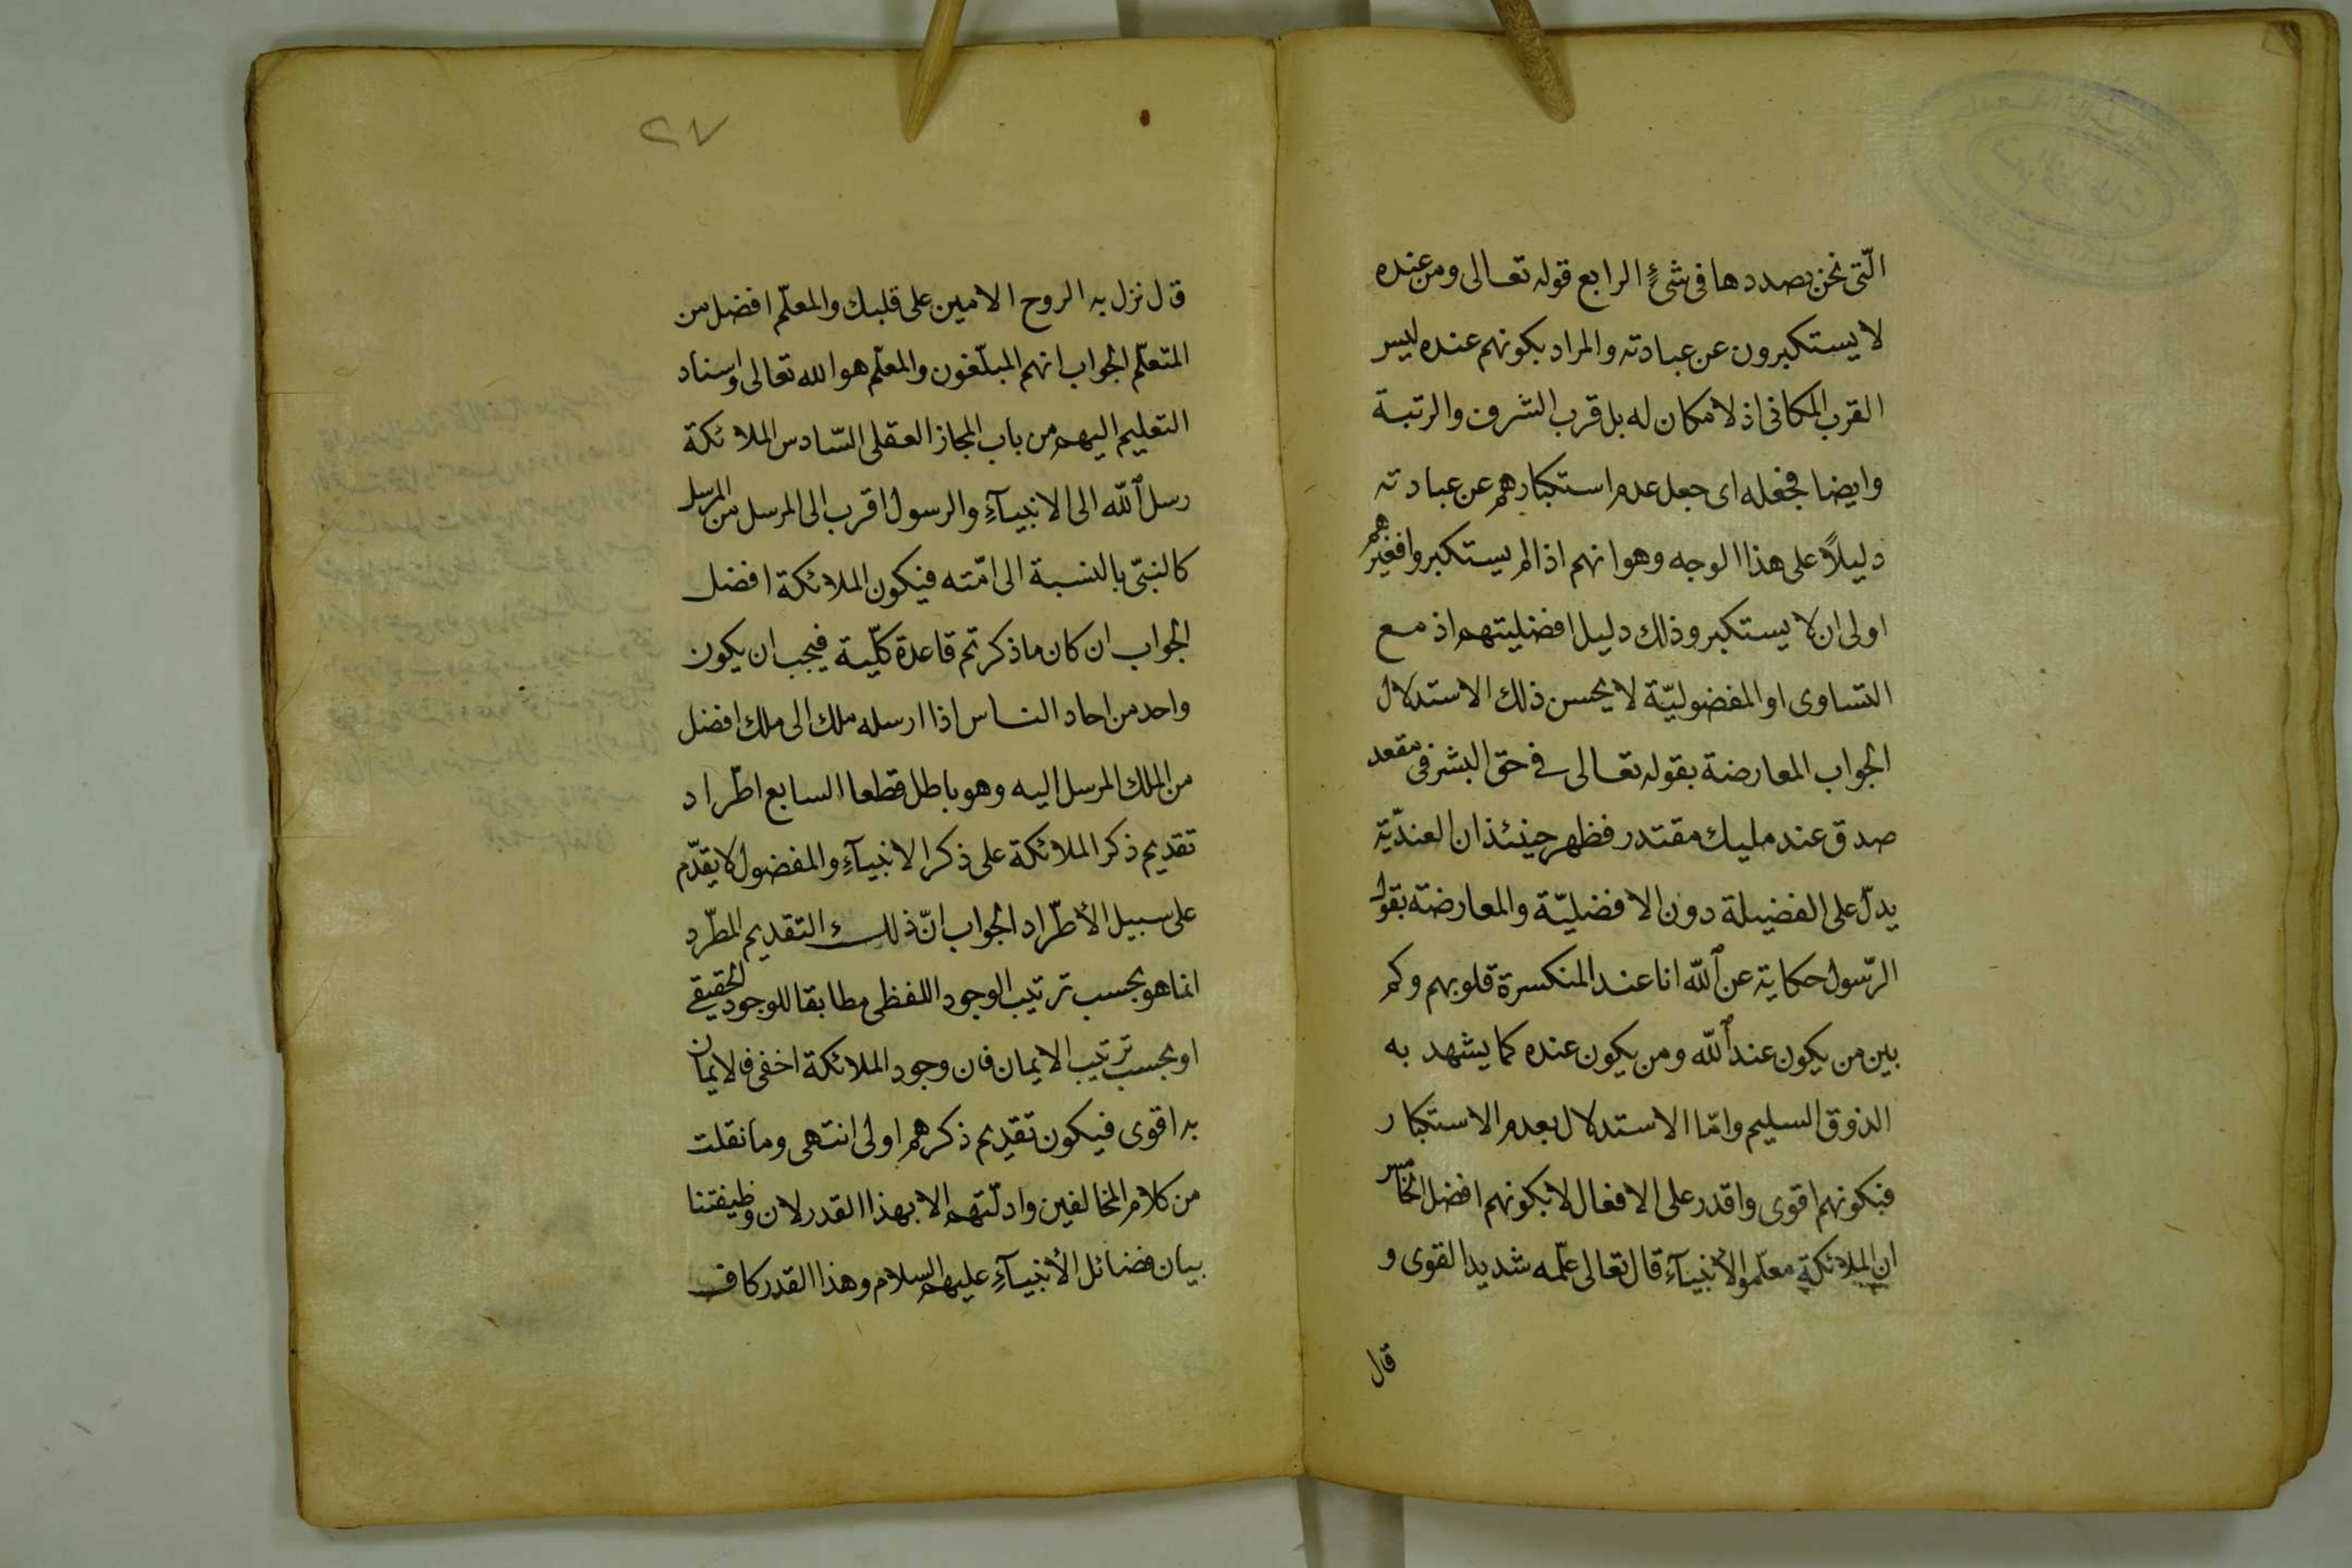 الّتى نحن بصددها فى شئٍ الرابع قوله تعالى ومن عنده
لا يستكبرون عن عبادته والمراد بكونهم عنده ليس
القرب المكانى اذ لا مكان له بل قرب الشرف والرتبة
وايضا فجعله اى جعل عدم استكبارهم عن عبادته
دليلاً على هذا الوجه وهو انهم اذا لم يستكبروا فغيرهم
اولى ان لا يستكبر وذلك دليل افضليتهم اذ مع
التساوى او المفضوليّة لا يحسن ذلك الاستدلال
الجواب المعارضة بقوله تعالى فى حق البشر فى مقعد
صدق عند مليك مقتدر فظهر حينئذ ان العنديّة
يدلّ على الفضيلة دون الافضليّة والمعارضة بقول
الرّسول حكاية عن اللّه انا عند المنكسرة قلوبهم وكم
بين من يكون عند اللّه ومن يكون عنده كما يشهد به
الذوق السليم وامّا الاستدلال بعدم الاستكبار
فبكونهم اقوى واقدر على الافعال لا بكونهم افضل الخامس
ان الملائكة معلّموا الأنبيآءِ قال تعالى علّمه شديد القوى و
قال
٢٧
قال نزل به الروح الامين على قلبك والمعلّم افضل من
المتعلّم الجواب انهم المبلّغون والمعلّم هو الله تعالى واسناد
التعليم اليهم من باب المجاز العقلى السّادس الملائكة
رسل اللّه الى الانبيآءِ والرسول اقرب الى المرسل من المرسل
كالنبىّ بالنسبة الى امّته فيكون الملائكة افضل
الجواب ان كان ما ذكرتم قاعدة كلّية فيجب ان يكون
واحد من احاد الناس اذا ارسله ملك الى ملك افضل
من الملك المرسل اليه وهو باطل قطعا السابع اطّراد
تقديم ذكر الملائكة على ذكر الانبيآءِ والمفضول لا يقدّم
على سبيل الأطّراد الجواب انّ ذلك التقديم المطّرد
انما هو بحسب ترتيب الوجود اللفظى مطابقا للوجود الحقيقى
او بحسب ترتيب الايمان فان وجود الملائكة اخفى فالايمان
به اقوى فيكون تقديم ذكرهم اولى انتهى وما نقلت
من كلام المخالفين وادلّتهم الا بهذا القدر لان وظيفتنا
بيان فضائل الأنبيآءِ عليهم السلام وهذا القدر كاف